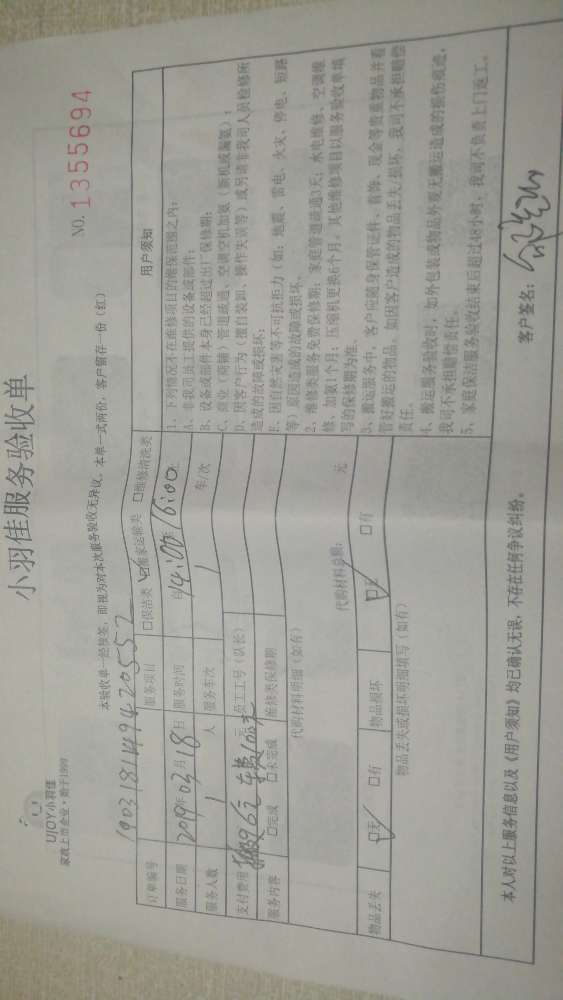 小羽佳服务验收单
UJOY小羽佳
家政上市企业·始于1999
NO. 1355694
本验收单一经签签，即视为对本次服务验收无异议，本单一式两份，客户留存一份（红）
订单编号 190318149420557
服务项目 □保洁类 ☑搬家运输类 □维修清洗类
服务日期 2019年03月18日 服务时间 14:00 16:00
服务人数 1 人 服务车次 1 车/次
支付费用 96元 100元 元 员工工号（队长）
服务内容 □完成 □未完成 维修类保修期
代购材料明细（如有）
代购材料总额： 元
物品丢失 ☑无 □有 物品损坏 ☑无 □有
物品丢失或损坏明细填写（如有）
用户须知
1、下列情况不在维修项目的维保范围之内：
A、非我司员工提供的设备或部件；
B、设备或部件本身已经超过出厂保修期；
C、商业（商铺）管道疏通、空调空机加氨（新机或漏氨）；
D、因客户行为（擅自装卸、操作失误等）或另请非我司人员检修所
造成的故障或损坏；
E、因自然灾害等不可抗拒力（如：地震、雷电、火灾、停电、短路
等）原因造成的故障或损坏。
2、维修类服务免费保修期：家庭管道疏通3天；水电维修、空调维
修、加氨1个月；压缩机更换6个月，其他维修项目以服务验收单填
写的保修期为准。
3、搬运服务中，客户应随身保管证件、首饰、现金等贵重物品并看
管好搬运的物品。如因客户造成的物品丢失/损坏，我司不承担赔偿
责任。
4、搬运服务验收时，如外包装或物品外观无搬运造成的损伤痕迹，
我司不承担赔偿责任。
5、家庭保洁服务验收结束后超过48小时，我司不负责上门返工。
本人对以上服务信息以及《用户须知》均已确认无误，不存在任何争议纠纷。
客户签名：